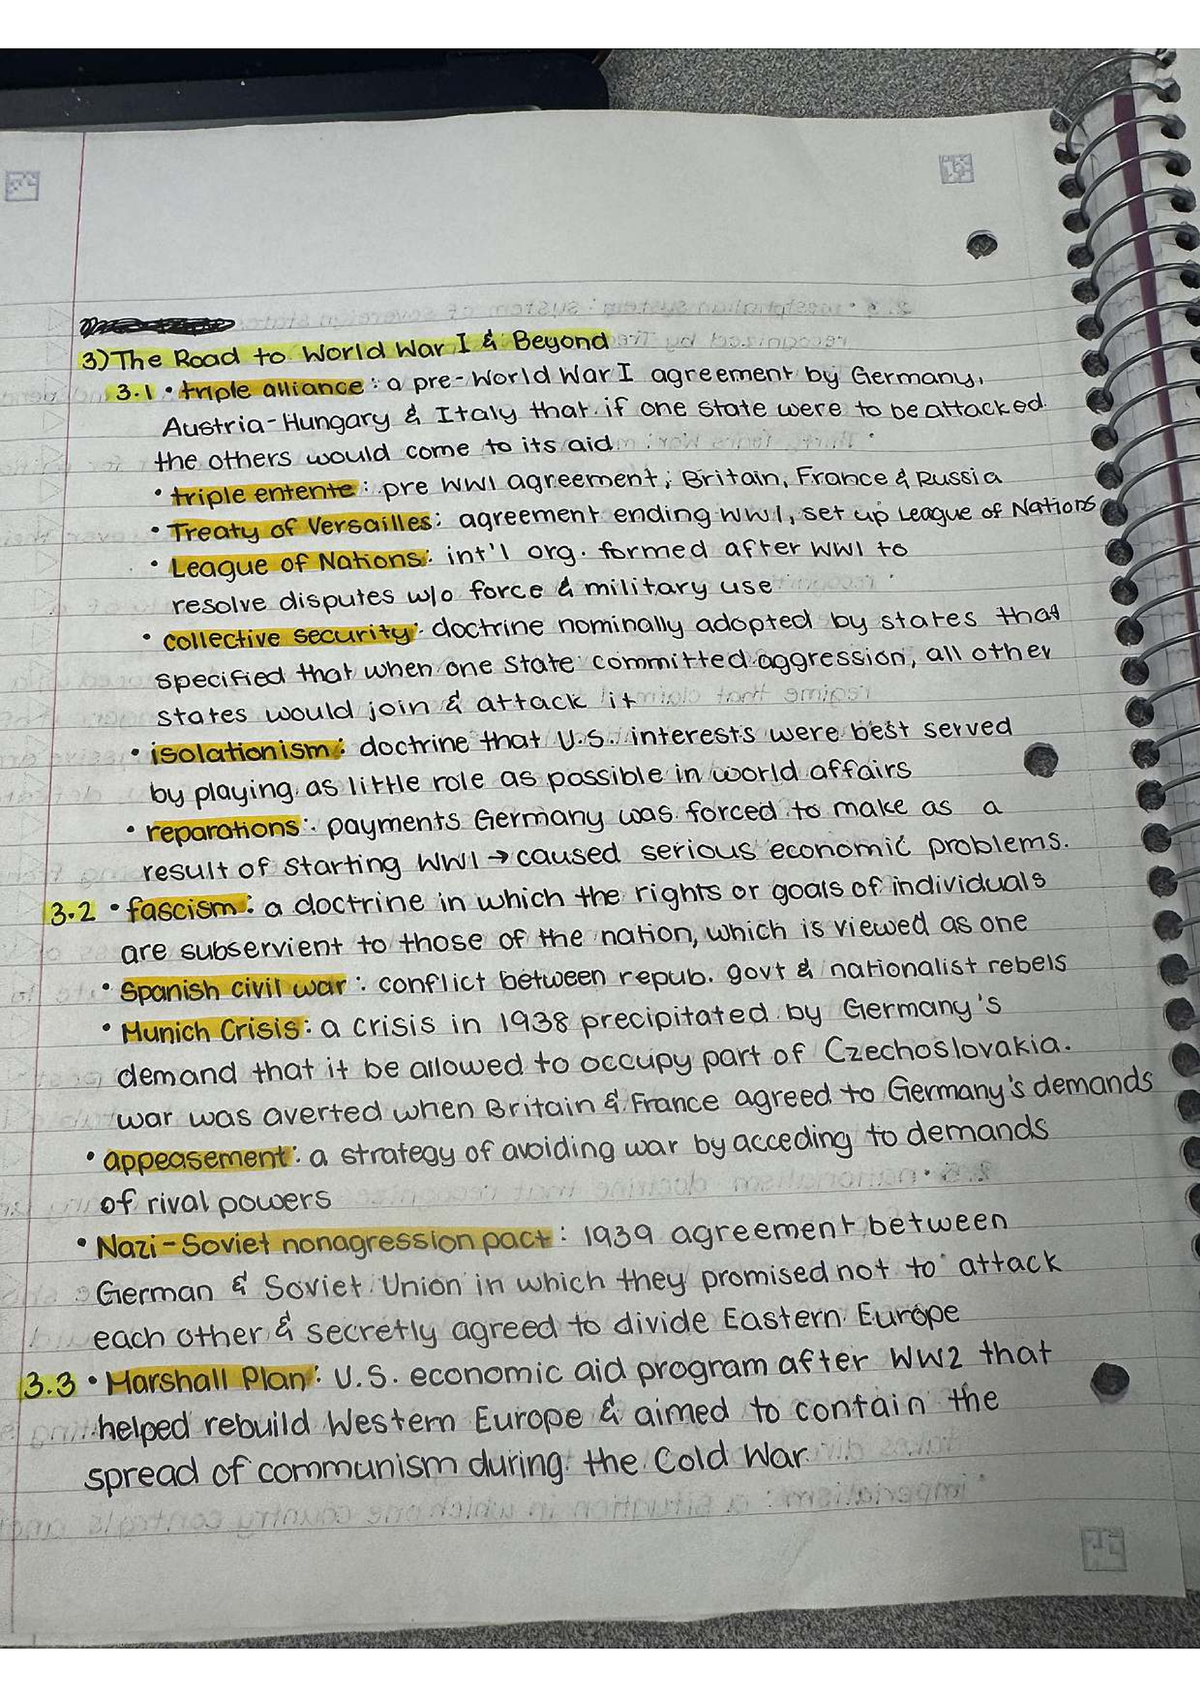 3) The Road to World War I & Beyond
3.1 • triple alliance: a pre-World War I agreement by Germany,
Austria-Hungary & Italy that if one state were to be attacked
the others would come to its aid
• triple entente: pre WW1 agreement; Britain, France & Russia
• Treaty of Versailles: agreement ending WW1, set up League of Nations
• League of Nations: int'l org. formed after WW1 to
resolve disputes w/o force & military use
• collective security: doctrine nominally adopted by states that
specified that when one state committed aggression, all other
states would join & attack it
• isolationism: doctrine that U.S. interests were best served
by playing as little role as possible in world affairs
• reparations: payments Germany was forced to make as a
result of starting WW1 → caused serious economic problems.
3.2 • fascism: a doctrine in which the rights or goals of individuals
are subservient to those of the nation, which is viewed as one
• Spanish civil war: conflict between repub. govt & nationalist rebels
• Munich Crisis: a crisis in 1938 precipitated by Germany's
demand that it be allowed to occupy part of Czechoslovakia.
war was averted when Britain & France agreed to Germany's demands
• appeasement: a strategy of avoiding war by acceding to demands
of rival powers
• Nazi-Soviet nonagression pact: 1939 agreement between
German & Soviet Union in which they promised not to attack
each other & secretly agreed to divide Eastern Europe
3.3 • Marshall Plan: U.S. economic aid program after WW2 that
helped rebuild Western Europe & aimed to contain the
spread of communism during the Cold War